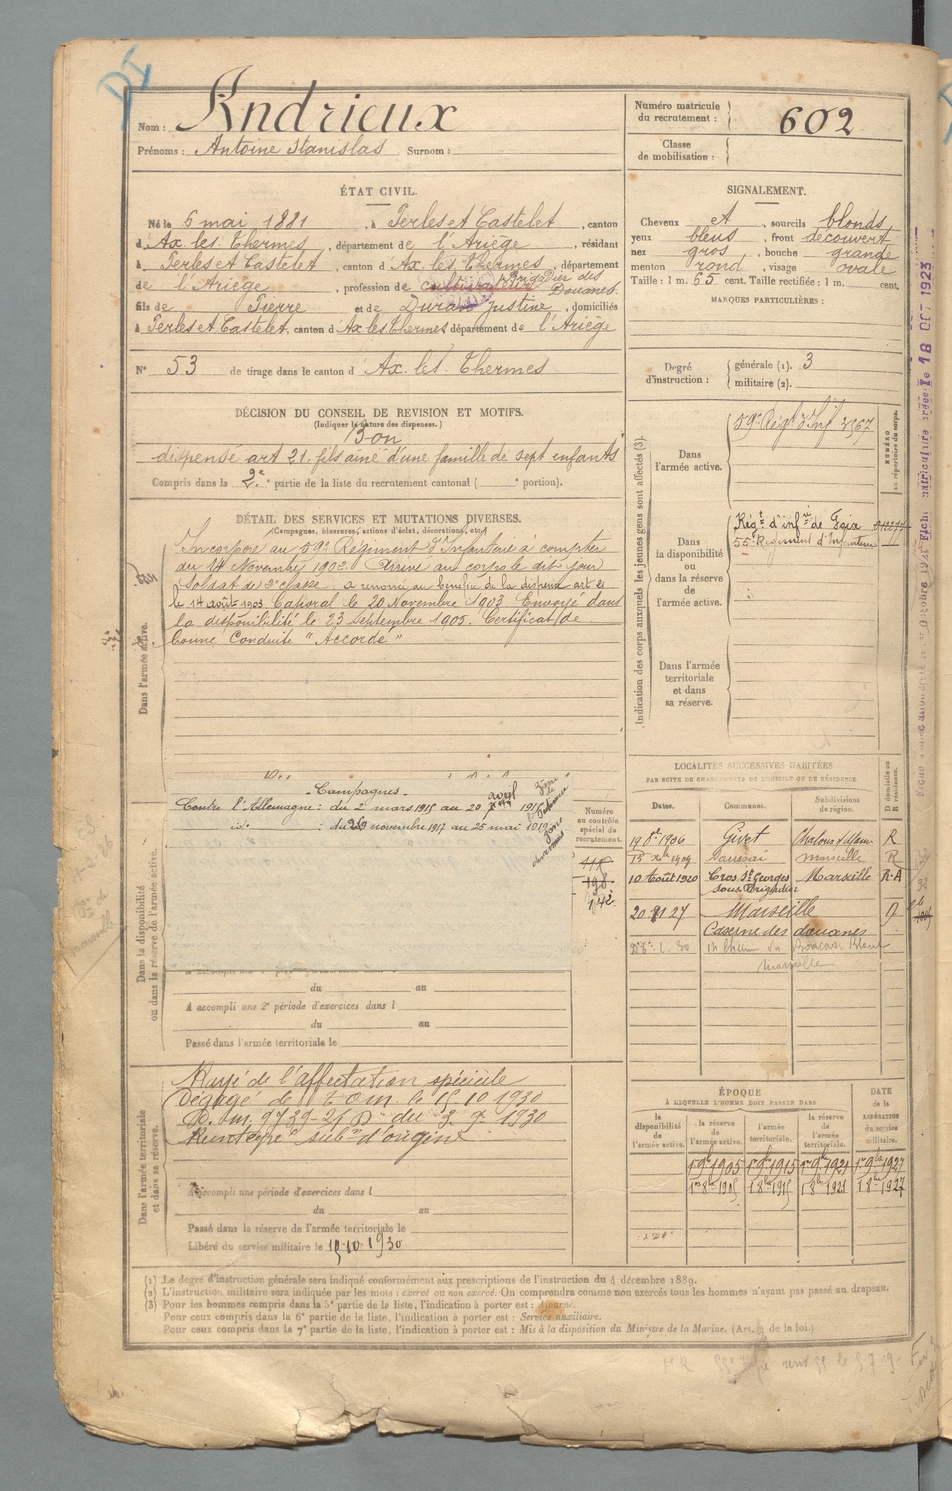 Nom : Andrieux
Prénoms : Antoine Stanislas Surnom :
Numéro matricule du recrutement : 602
Classe de mobilisation :
ÉTAT CIVIL.
Né le 6 mai 1881, à Perles et Castelet, canton
d'Ax les Thermes, département de l'Ariège, résidant
à Perles et Castelet, canton d'Ax les Thermes, département
de l'Ariège, profession de Brigadier des Douanes
fils de Pierre et de Durand Justine, domiciliés
à Perles et Castelet, canton d'Ax les Thermes département de l'Ariège
N° 53 de tirage dans le canton d'Ax. les. Thermes
SIGNALEMENT.
Cheveux et, sourcils blonds
yeux bleus, front découvert
nez gros, bouche grande
menton rond, visage ovale
Taille : 1 m. 65 cent. Taille rectifiée : 1 m. cent.
MARQUES PARTICULIÈRES :
Degré d'instruction : générale (1). 3
militaire (2).
DÉCISION DU CONSEIL DE REVISION ET MOTIFS.
(Indiquer la nature des dispenses.)
Bon
dispensé art 21. fils aîné d'une famille de sept enfants
Compris dans la 2e partie de la liste du recrutement cantonal ( e portion).
DÉTAIL DES SERVICES ET MUTATIONS DIVERSES.
(Campagnes, blessures, actions d'éclat, décorations, etc.)
Dans l'armée active.
Incorporé au 59e Régiment d'Infanterie à compter
du 14 Novembre 1902. Arrivé au corps le dit jour
Soldat de 2e classe. a renoncé au bénéfice de la dispense art 21
le 14 août 1903 Caporal le 20 Novembre 1903 Envoyé dans
la disponibilité le 23 septembre 1905. Certificat de
bonne Conduite "Accordé"
Indication des corps auxquels les jeunes gens sont affectés (3).
NUMÉRO au répertoire du corps.
Dans l'armée active.
59e Régt d'Inf 3567
Dans la disponibilité ou dans la réserve de l'armée active.
Régt d'infie de Foix
55e Régiment d'Infanterie
Dans l'armée territoriale et dans sa réserve.
Dans la disponibilité ou dans la réserve de l'armée active.
- Campagnes -
Contre l'Allemagne : du 2 mars 1915 au 20 avril 1916
id. : du 29 novembre 1917 au 25 mai 1919
Numéro au contrôle spécial du recrutement.
198
142
du au
A accompli une 2e période d'exercices dans l
du au
Passé dans l'armée territoriale le
LOCALITÉS SUCCESSIVES HABITÉES
PAR SUITE DE CHANGEMENTS DE DOMICILE OU DE RÉSIDENCE.
Dates. Communes. Subdivisions de région. D domicile ou R résidence.
19 8e 1906 Givet R
Marseille R
10 Août 1920 Cros St Georges Marseille R.A
sous Brigadier
20 91 27 Marseille D
Caserne des douanes
Marseille
Dans l'armée territoriale et dans sa réserve.
Rayé de l'affectation spéciale
Dégagé de t. o. m. le 15 10 1930
Réintégré subon d'origine
A accompli une période d'exercices dans l
du au
Passé dans la réserve de l'armée territoriale le
Libéré du service militaire le 15-10-1930
ÉPOQUE
A LAQUELLE L'HOMME DOIT PASSER DANS
DATE de la LIBÉRATION du service militaire.
la disponibilité de l'armée active.
la réserve de l'armée active.
l'armée territoriale.
la réserve de l'armée territoriale.
1er 9bre 1905 1er 9bre 1915 1er 9bre 1921 1er 9bre 1927
1er 8bre 1905 1 8bre 1915 1 8bre 1921 1 8bre 1927
(1) Le degré d'instruction générale sera indiqué conformément aux prescriptions de l'instruction du 4 décembre 1889.
(2) L'instruction militaire sera indiquée par les mots : exercé ou non exercé. On comprendra comme non exercés tous les hommes n'ayant pas passé au drapeau.
(3) Pour les hommes compris dans la 5e partie de la liste, l'indication à porter est : Ajourné.
Pour ceux compris dans la 6e partie de la liste, l'indication à porter est : Service auxiliaire.
Pour ceux compris dans la 7e partie de la liste, l'indication à porter est : Mis à la disposition du Ministre de la Marine. (Art. de la loi.)
18 OCT 1923